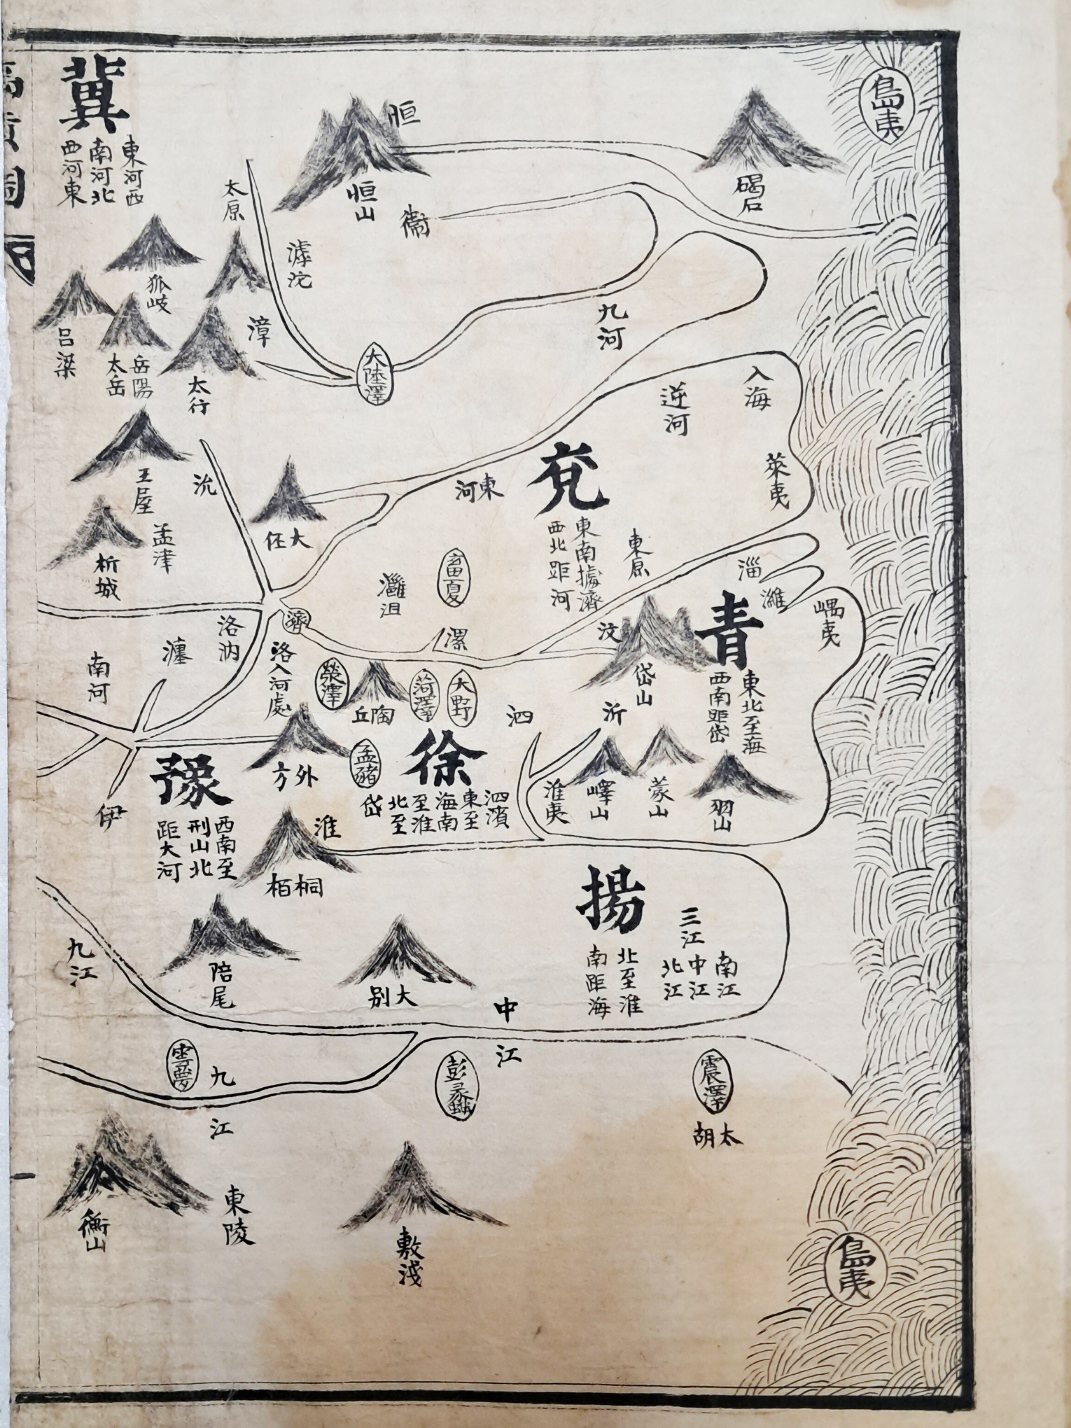 島夷
冀
東河西
南河北
西河東
恒
恒山
碣石
衛
太原
滹沱
狐岐
呂梁
岳陽
太岳
漳
太行
大陸澤
九河
入海
逆河
萊夷
兗
東南據濟
西北距河
東原
東河
王屋
沇
大伾
孟津
析城
灉沮
雷夏
濟
漯
汶
淄
濰
嵎夷
青
東北至海
西南距岱
岱山
洛汭
瀍
南河
洛入河處
滎澤
陶丘
菏澤
大野
泗
沂
徐
泗濱
東至
海南
至淮
北至
岱
孟豬
外方
豫
西南至
刑山北
距大河
伊
淮
桐栢
淮夷
嶧山
蒙山
羽山
揚
北至淮
南距海
三江
南江
中江
北江
九江
陪尾
大別
中江
雲夢
九江
彭蠡
震澤
太胡
衡山
東陵
敷淺
島夷